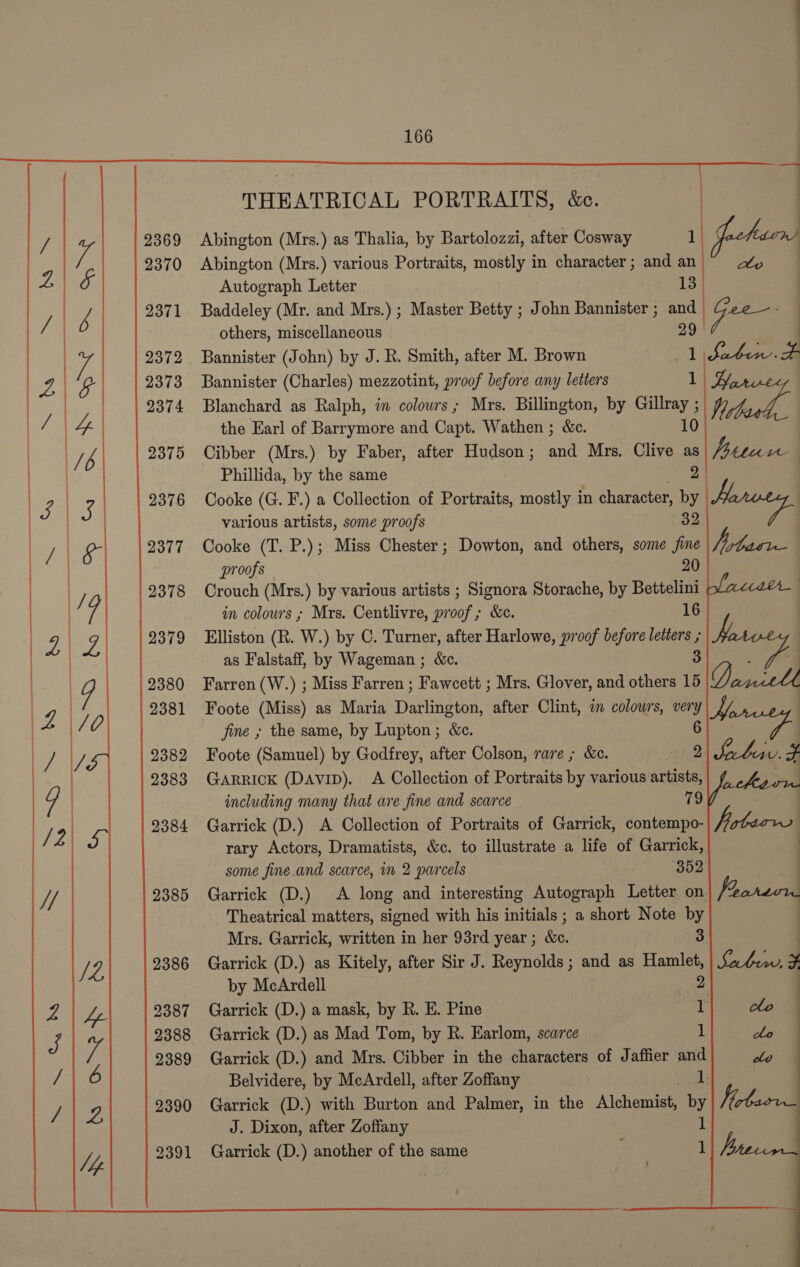 166
THEATRICAL PORTRAITS, &c.
1 7 2369 Abington (Mrs.) as Thalia, by Bartolozzi, after Cosway 1 Jackson
2 8 2370 Abington (Mrs.) various Portraits, mostly in character; and an do
Autograph Letter 13
1 6 2371 Baddeley (Mr. and Mrs.); Master Betty; John Bannister; and Gee
others, miscellaneous 29
7 2372 Bannister (John) by J. R. Smith, after M. Brown 1 Sabin. F
2 8 2373 Bannister (Charles) mezzotint, proof before any letters 1 Harvey
1 4 2374 Blanchard as Ralph, in colours; Mrs. Billington, by Gillray;
the Earl of Barrymore and Capt. Wathen; &c. 10
16 2375 Cibber (Mrs.) by Faber, after Hudson; and Mrs. Clive as
Phillida, by the same 2
3 3 2376 Cooke (G. F.) a Collection of Portraits, mostly in character, by Harvey
various artists, some proofs 32
1 8 2377 Cooke (T. P.); Miss Chester; Dowton, and others, some fine Hobson
proofs 20
19 2378 Crouch (Mrs.) by various artists; Signora Storache, by Bettelini
in colours; Mrs. Centlivre, proof; &c. 16
2 2 2379 Elliston (R. W.) by C. Turner, after Harlowe, proof before letters; Harvey
as Falstaff, by Wageman; &c. 3
9 2380 Farren (W.); Miss Farren; Fawcett; Mrs. Glover, and others 15 Daniell
2 10 2381 Foote (Miss) as Maria Darlington, after Clint, in colours, very Harvey
fine; the same, by Lupton; &c. 6
1 15 2382 Foote (Samuel) by Godfrey, after Colson, rare; &c. 2 Sabin. F
9 2383 GARRICK (DAVID). A Collection of Portraits by various artists, Jackson
including many that are fine and scarce 79
12 5 2384 Garrick (D.) A Collection of Portraits of Garrick, contempo- Hobson
rary Actors, Dramatists, &c. to illustrate a life of Garrick,
some fine and scarce, in 2 parcels 352
11 2385 Garrick (D.) A long and interesting Autograph Letter on Pearson
Theatrical matters, signed with his initials; a short Note by
Mrs. Garrick, written in her 93rd year; &c. 3
12 2386 Garrick (D.) as Kitely, after Sir J. Reynolds; and as Hamlet, Sabin. F
by McArdell 2
2 4 2387 Garrick (D.) a mask, by R. E. Pine 1 do
3 7 2388 Garrick (D.) as Mad Tom, by R. Earlom, scarce 1 do
1 6 2389 Garrick (D.) and Mrs. Cibber in the characters of Jaffier and do
Belvidere, by McArdell, after Zoffany 1
1 2 2390 Garrick (D.) with Burton and Palmer, in the Alchemist, by Hobson
J. Dixon, after Zoffany 1
14 2391 Garrick (D.) another of the same 1